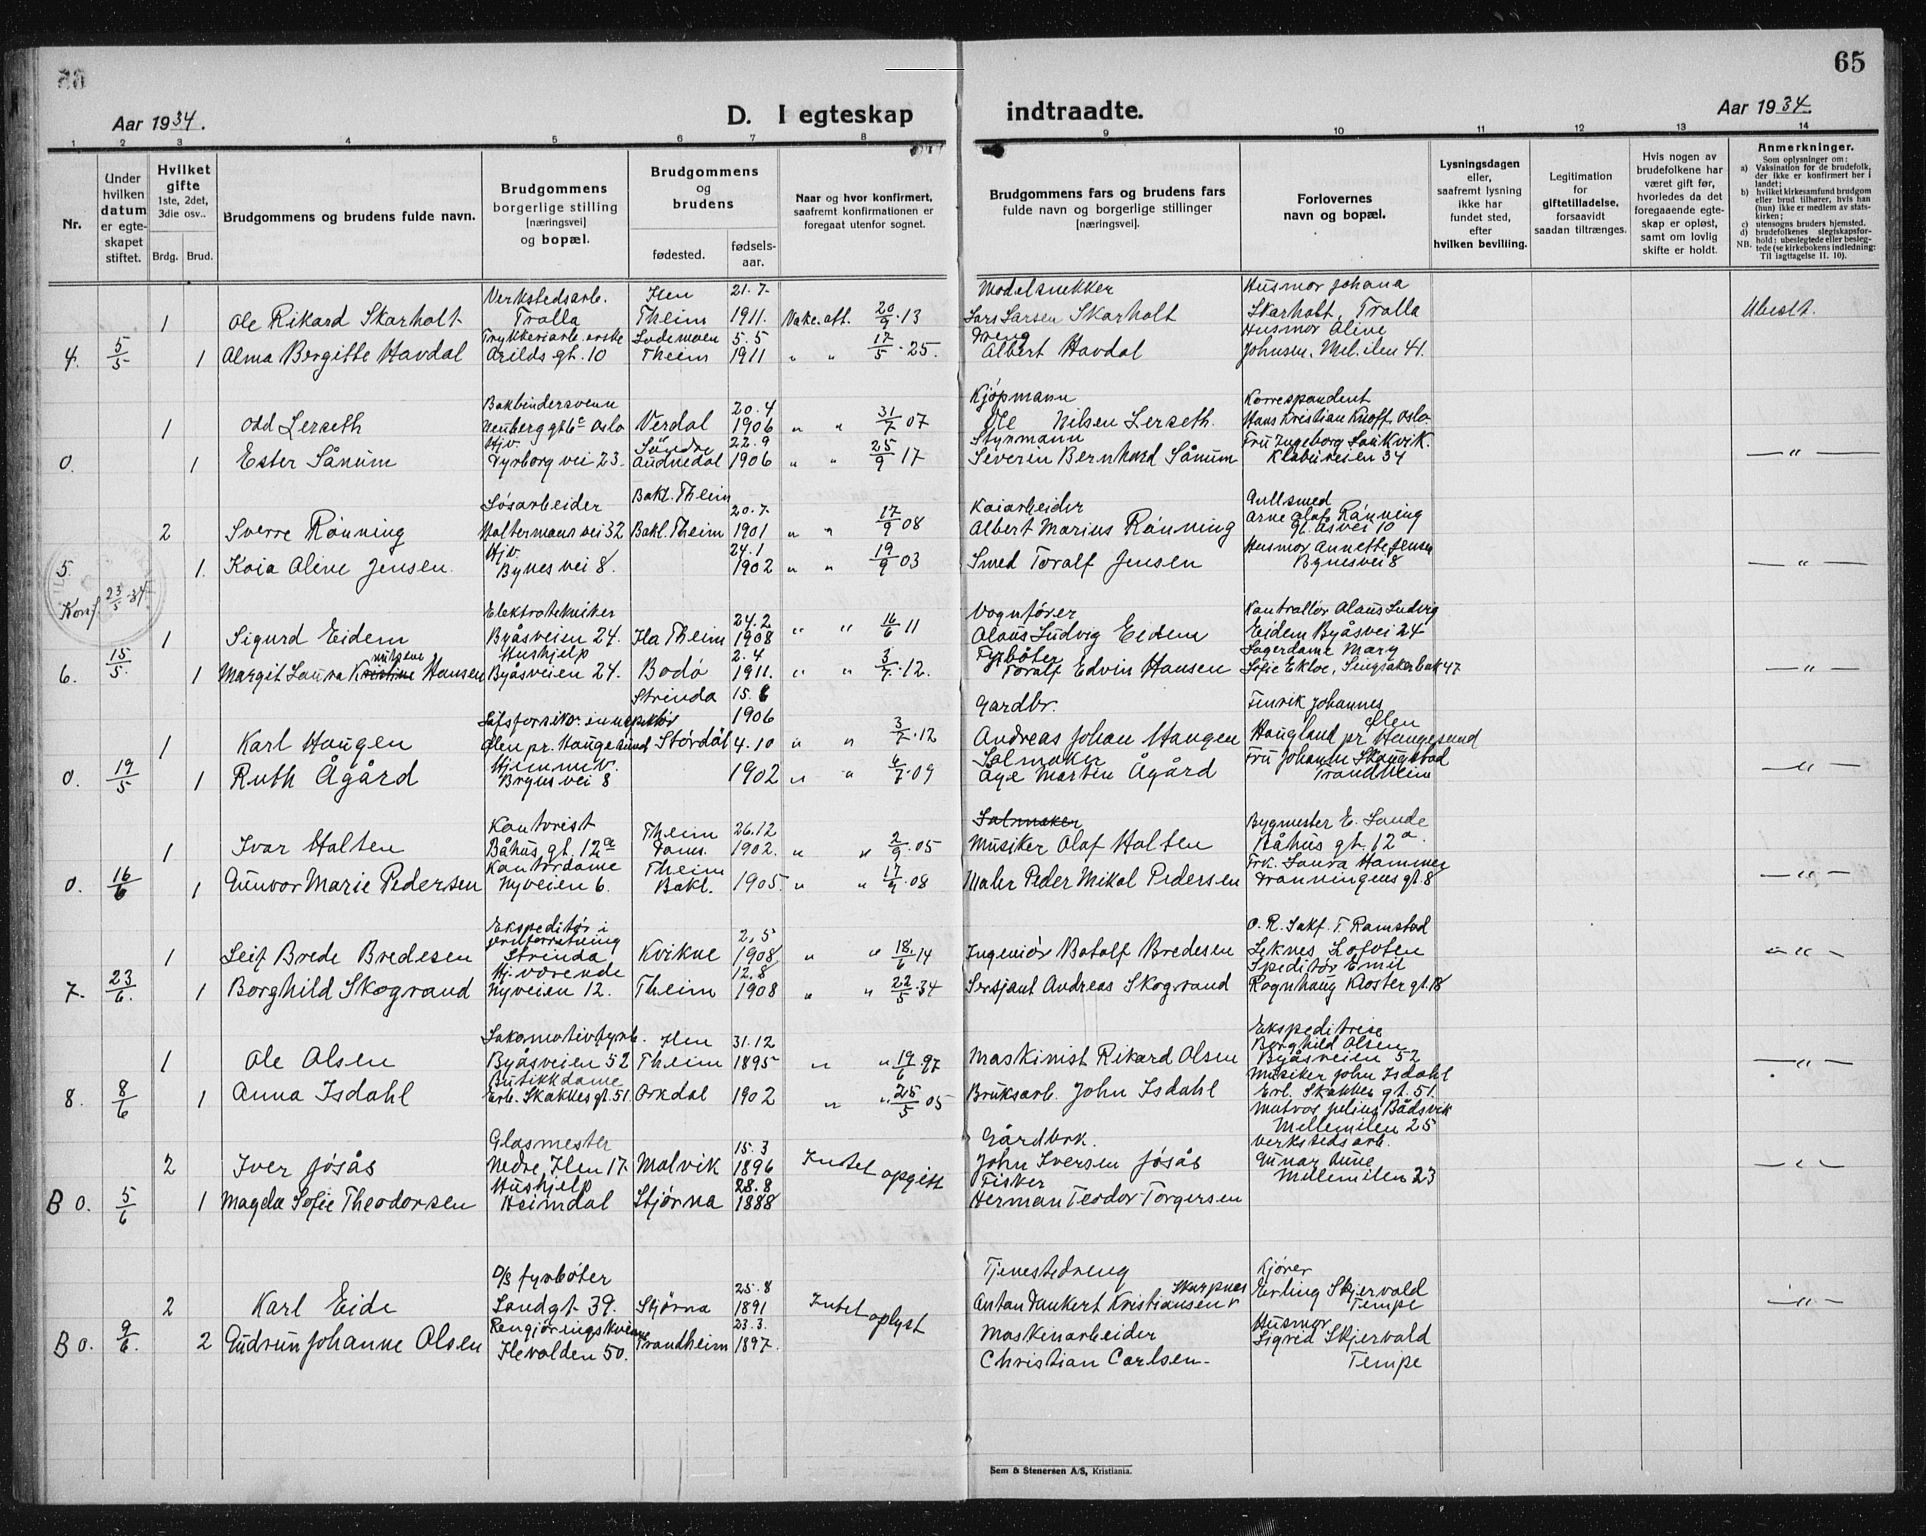 65
Aar 1934.
D. I egteskap
indtraadte.
Aar 1934.
1 2 3 4 5 6 7 8 9 10 11 12 13 14
Nr.
Under hvilken datum er egteskapet stiftet.
Hvilket gifte 1ste, 2det, 3die osv..
Brdg. Brud.
Brudgommens og brudens fulde navn.
Brudgommens borgerlige stilling [næringsvei] og bopæl.
Brudgommens og brudens
fødested. fødselsaar.
Naar og hvor konfirmert, saafremt konfirmationen er foregaat utenfor sognet.
Brudgommens fars og brudens fars fulde navn og borgerlige stillinger [næringsvei].
Forlovernes navn og bopæl.
Lysningsdagen eller, saafremt lysning ikke har fundet sted, efter hvilken bevilling.
Legitimation for giftetilladelse, forsaavidt saadan tiltrænges.
Hvis nogen av brudefolkene har været gift før, hvorledes da det foregaaende egteskap er opløst, samt om lovlig skifte er holdt.
Anmerkninger.
Som oplysninger om:
a) Vaksination for de brudefolk, der ikke er konfirmert her i landet;
b) hvilket kirkesamfund brudgom eller brud tilhører, hvis han (hun) ikke er medlem av statskirken;
c) utensogns bruders hjemsted.
d) brudefolkenes slegtskapsforhold: ubeslegtede eller beslegtede (se kirkebokens indledning: Til iagttagelse II. 10).
NB.
Verkstedsarb. Ilen 21.7. Modelsnekker Husmor Johana
1 Ole Rikard Skarholt Tralla Theim 1911. Vake. att. 20/9.13 Lars Larsen Skarholt Skarholt, Tralla Ubesl t.
Lademoen 5.5 Dreng Husmor Alive
4. 5/5 1 Alma Bergitte Havdal Arilds gt. 10 Theim 1911 " " 17/5.25. Albert Havdal Johnsen, Mel.ilen 41.
Bokbindersvenn 20.4 Kjøpmann Korrespondent
1 Odd Lerseth Verdal 1906 " " 31/7 07 Ole Nilsen Lerseth. Hans Kristian Knoff, Oslo
Hjv. Søndre 22.9 Styrmann Fru Ingeborg
0. 1 Ester Sånum Dyrborg vei 23. Audnedal 1906 " " 25/9 17 Severin Bernhard Sånum Klæbuveien 34 — " —
Løsarbeider Bakl. Theim 20.7 Kaiarbeider Gullsmed
2 Sverre Rønning Valtermans vei 32 Bakl. Theim 1901 " " 17/9 08 Albert Marius Rønning Arne Olaf Rønning
gl. åsvei 10
Hjv. 24.1 Husmor Annette Jensen
5. 1. Kaia Aline Jensen. Bynesvei 8. 1902 " " 19/9 03 Smed Toralf Jensen Bynesvei 8 — " —
Konf. 23/5.34
Elektrotekniker 24.2 Vognfører Kontrollør Alaus Ludvig
1 Sigurd Eidem Byåsveien 24. Ila Theim 1908 " " 16/6 11 Alaus Ludvig Eidem Eidem Byåsvei 24
Hushjelp 2.4 Fyrbøter Lagerdame Mary
6. 15/5. 1 Margit Laura Kristine Hansen Byåsveien 24. Bodø 1911. " " 3/7.12. Toralf Edvin Hansen Sofie Ekloe, Singsakerbak 47 — " —
Strinda 15.6 Gardbr. Fenrik Johannes
Livsforsikr. inspektør 1906 Ølen
1 Karl Haugen Ølen pr. Haugesund Stördal 4.10 " " 3/7.12 Andreas Johan Haugen Haugland pr Haugesund
Hjemmev. Salmaker Fru Johanne Skaugstad
0. 19/5 1 Ruth Ågård Brynsvei 8 1902 " " 4/7.09 Åge Martin Ågård Trondheim — " —
Kontorist Theim 26.12 Salmaker Bygmester E. Sande
1 Ivar Halten Båhus gt. 12a Doms. 1902. " " 2/9.05 Musiker Olaf Halten Båhus gt. 12a.
Kontordame Theim Frk. Laura Hammer
0. 16/6 1 Gunvor Marie Pedersen Nyveien 6. Bakl. 1905 " " 17/9.08 Maler Peder Mikal Pedersen Dronningens gt. 8 — " —
Ekspeditør i O. R. Sakf. T. Ramstad
jernforretning 2.5
1 Leif Brede Bredesen Strinda Kvikne 1908 " " 18/6 14 Ingeniør Botolf Bredesen Leknes Lofoten — " —
Hj. værende 12.8 Speditør Emil
7. 23/6. 1 Borghild Skogrand Nyveien 12. Theim 1908 " " 22/5.34 Sersjant Andreas Skogrand Rognhaug Kloster gt. 18
Lokomotivfyrb. Ilen 31.12 Ekspeditrise
Borghild Olsen
1 Ole Olsen Byåsveien 52 Theim 1895 " " 19/6.97 Maskinist Rikard Olsen Byåsveien 52 — " —
Butikkdame Musiker John Isdahl
8. 8/6 1 Anna Isdahl Erl. Skakkes gt. 51 Orkdal 1902 " " 25/5 05 Bruksarb. John Isdahl Erl. Skakkes gt. 51.
Matros Julius Bådsvik
Mellemilen 25
Glasmester 15.3 Gårdbrk. Verkstedsarb.
2 Iver Jøsås Nedre Ilen 17. Malvik 1896 Intet opgitt John Iversen Jøsås Gunar Aune — " —
Hushjelp 28.8 Fisker Mellemilen 23
B 0. 5/6 1 Magda Sofie Theodorsen Heimdal Stjørna 1888 Herman Teodor Torgersen
D/S fyrbøter 25.8 Tjenestedreng Kjører
Skarpnes
2 Karl Eide Sandgt. 39. Stjørna 1891 Intet oplyst Anton Dankert Kristiansen Erling Skjervold — " —
Tempe
Rengjøringskvinne 23.3. Husmor
B 0. 9/6. 2 Gudrun Johanne Olsen Ilevolden 50. Trondheim 1897. Maskinarbeider Sigrid Skjervold
Christian Carlsen. Tempe
Sem & Stenersen A/S, Kristiania.